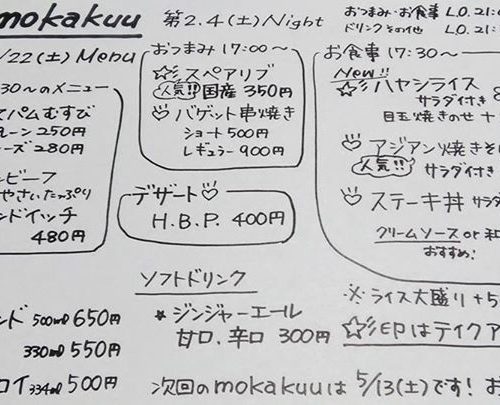 mokakuu 第2.4(土)Night
/22(土)Menu
おつまみ・お食事 L.O.21:
ドリンクその他 L.O.21:
30〜のメニュー
てパムむすび
ーン250円
ーズ280円
ンビーフ
やさいたっぷり
ンドイッチ
480円
おつまみ 17:00〜
☆スペアリブ
人気!! 国産 350円
♡バゲット串焼き
ショート500円
レギュラー900円
デザート♡
H.B.P. 400円
お食事 17:30〜
New!!
☆ハヤシライス
サラダ付き
目玉焼きのせ +
♡アジアン焼きそ
人気!! サラダ付き
♡ステーキ丼 サラ
クリームソース or 和
おすすめ!
※ライス大盛り+5
☆印はテイクア
ソフトドリンク
* ジンジャーエール
甘口、辛口 300円
ンド 500ml 650円
330ml 550円
ロイ 334ml 500円
次回のmokakuuは 5/13(土)です! お